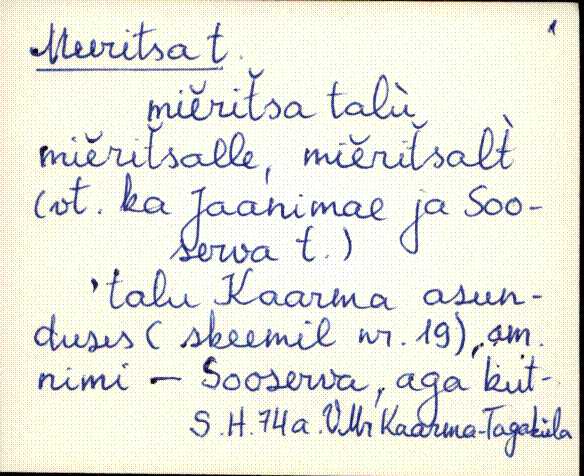 1
Meeritsa t.
miĕrit̆sa talù
miĕrit̆salle, miĕrit̆salt̀
(vt. ka Jaanimäe ja Soo-
serva t.)
'talu Kaarma asun-
duses (skeemil nr. 19), am.
nimi – Sooserva, aga küt-
S.H. 74a. VMr Kaarma-Tagaküla